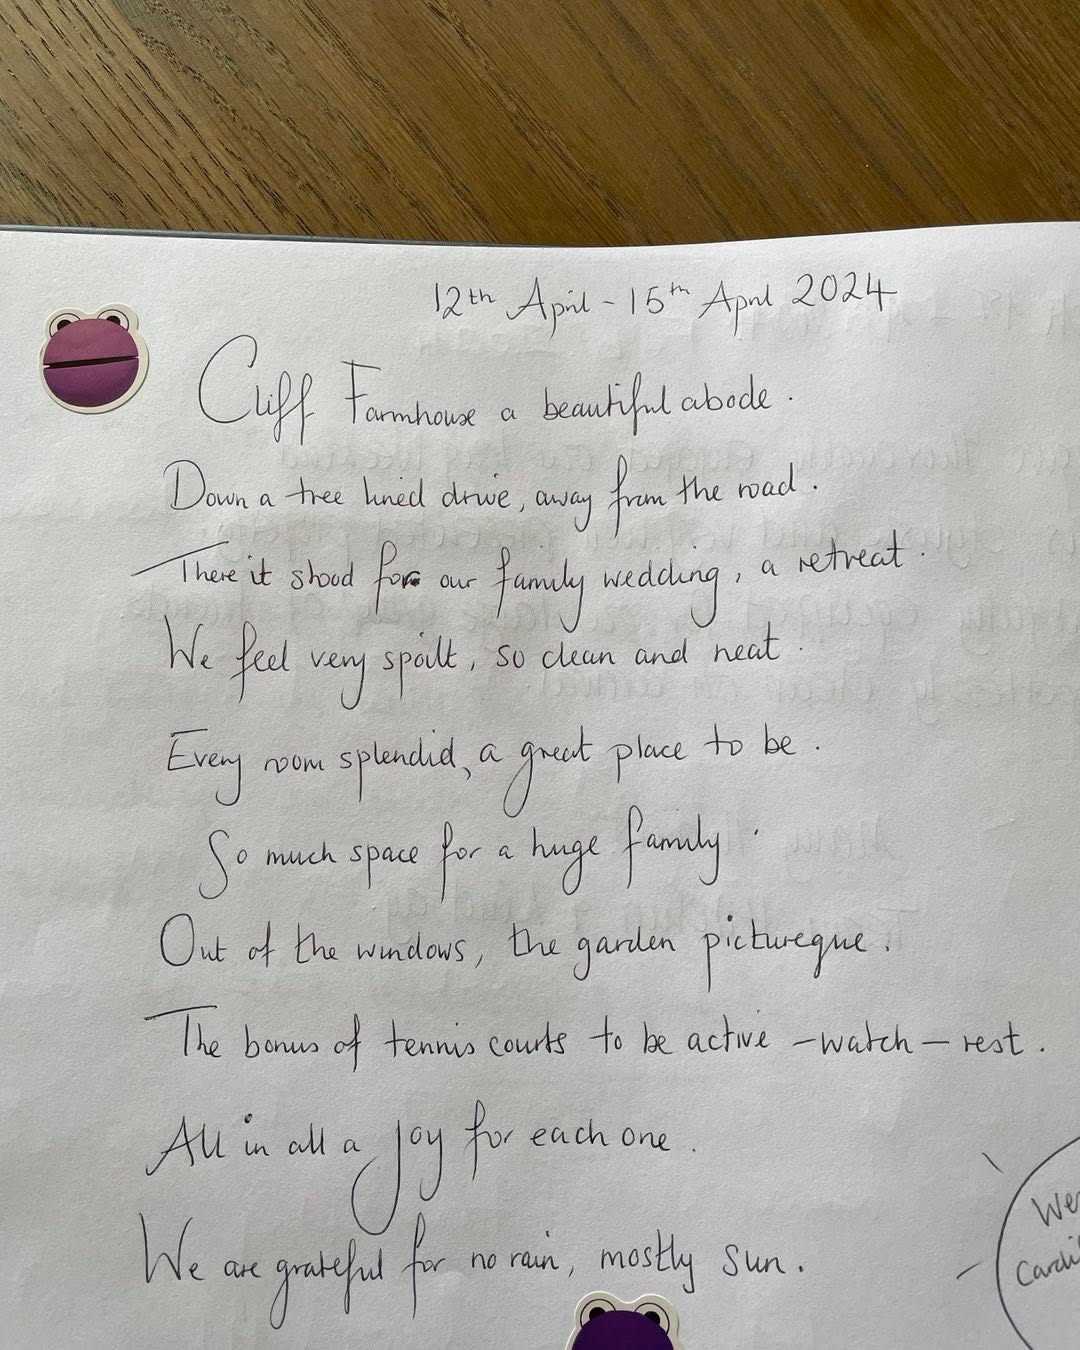 12th April - 15th April 2024
Cliff Farmhouse a beautiful abode.
Down a tree lined drive, away from the road.
There it stood for our family wedding, a retreat.
We feel very spoilt, so clean and neat.
Every room splendid, a great place to be.
So much space for a huge family.
Out of the windows, the garden pictureque.
The bonus of tennis courts to be active - watch - rest.
All in all a joy for each one.
We are grateful for no rain, mostly sun.